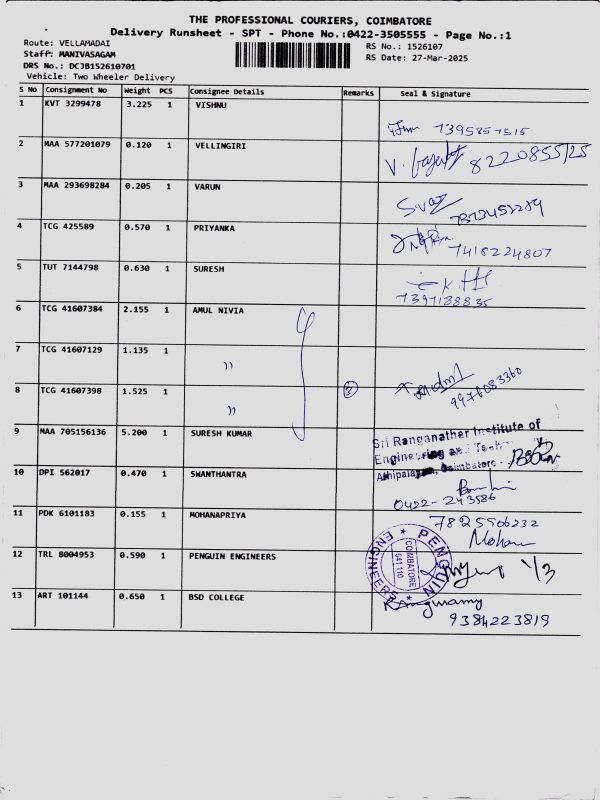 THE PROFESSIONAL COURIERS, COIMBATORE
Delivery Runsheet - SPT - Phone No.:0422-3505555 - Page No.:1
Route: VELLAMADAI
Staff: MANIVASAGAM
DRS No.: DCJB152610701
Vehicle: Two Wheeler Delivery
RS No.: 1526107
RS Date: 27-Mar-2025
S No Consignment No Weight PCS Consignee Details Remarks Seal & Signature
1 KVT 3299478 3.225 1 VISHNU
2 MAA 577201079 0.120 1 VELLINGIRI
8220855125
3 MAA 293698284 0.205 1 VARUN
4 TCG 425589 0.570 1 PRIYANKA
7418224807
5 TUT 7144798 0.630 1 SURESH
7397188835
6 TCG 41607384 2.155 1 AMUL NIVIA
7 TCG 41607129 1.135 1 "
8 TCG 41607398 1.525 1 " 3
9976083360
9 MAA 705156136 5.200 1 SURESH KUMAR
Sri Ranganather Institute of
Engineering and
Athipalayam, Coimbatore -
10 DPI 562017 0.470 1 SWANTHANTRA
0422-243586
11 PDK 6101183 0.155 1 MOHANAPRIYA
7825906232
Mohan
12 TRL 8004953 0.590 1 PENGUIN ENGINEERS
PENGUIN ENGINEERS
COIMBATORE
641 110
13 ART 101144 0.650 1 BSD COLLEGE
9384223819